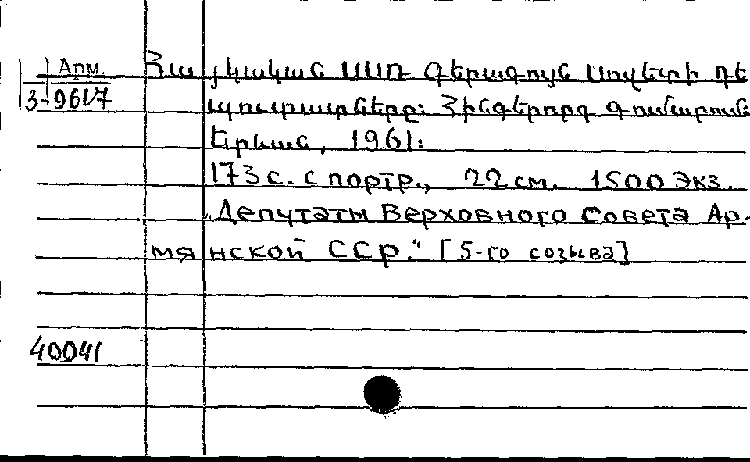 Арм. Հայկական ՍՍՌ Գերագույն Սովետի դե
3-9617 պուտատները: Հինգերորդ գումարում
Երևան, 1961:
173 с. с портр., 22 см. 1500 экз.
„Депутаты Верховного Совета Ар-
мянской ССР.“ [5-го созыва]
40041